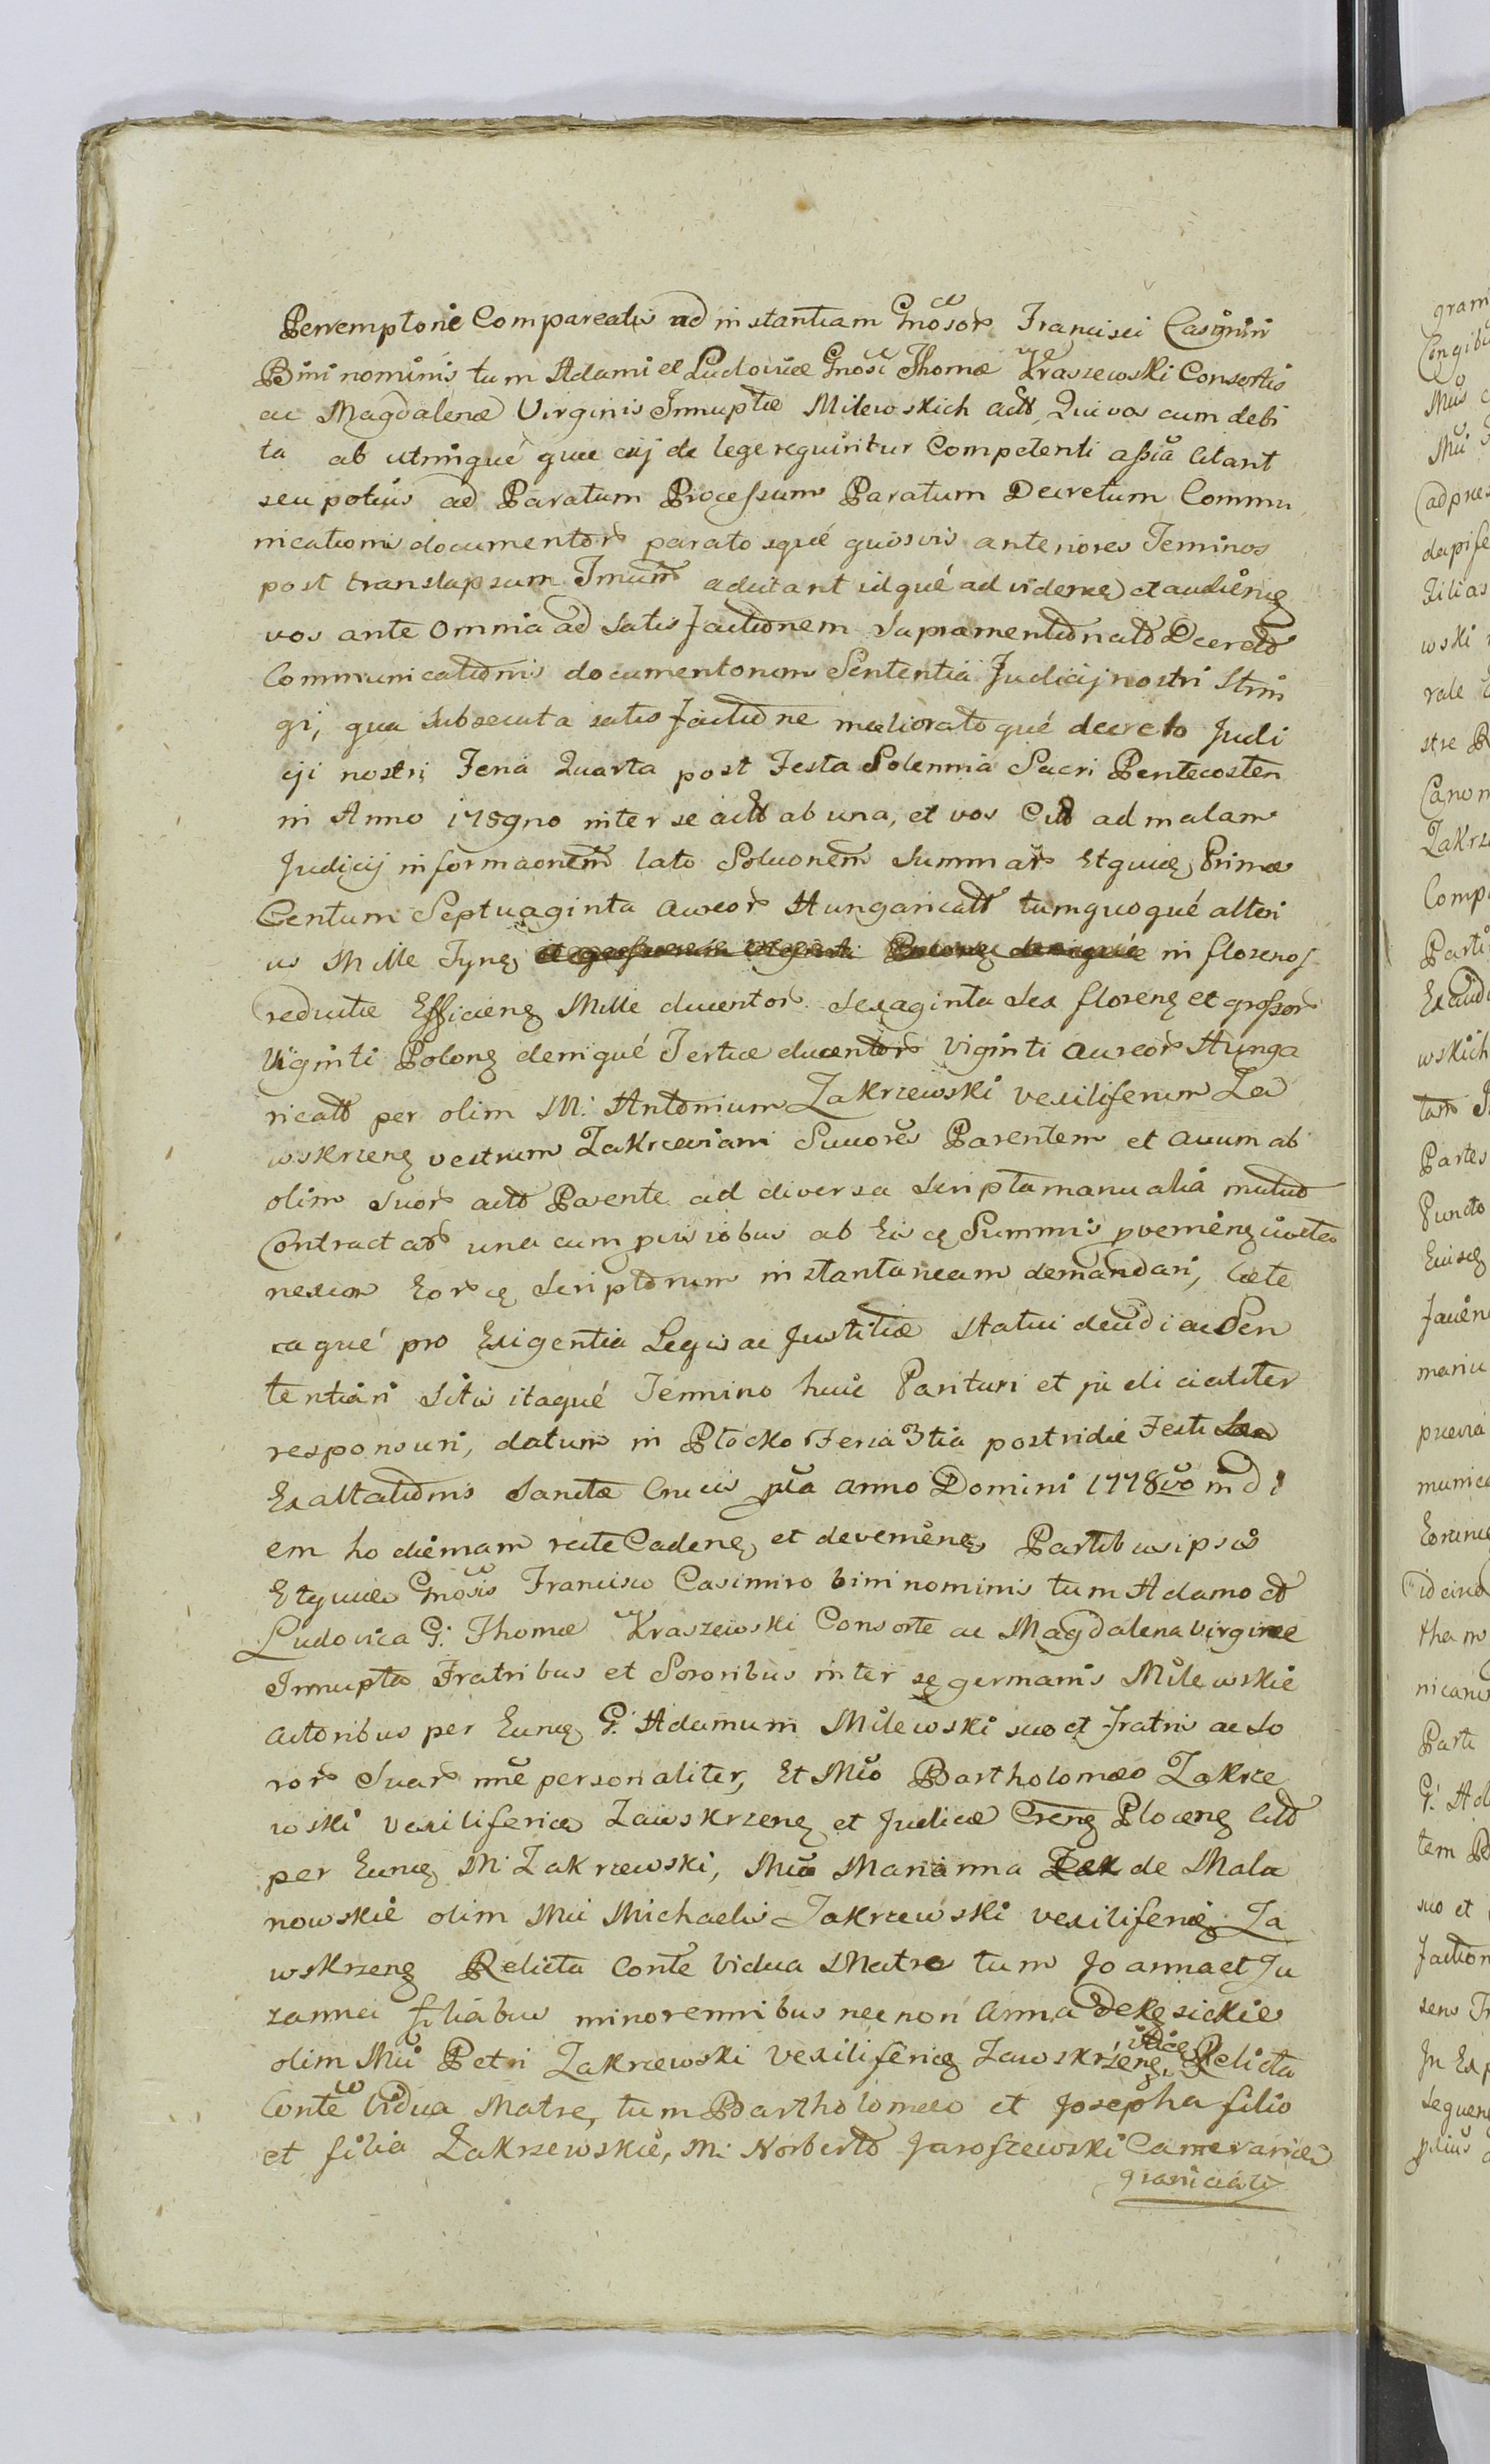 Perremptorie Compareatis ad instantiam Gnosor Francisci Casimiri
Bini nominis tum Adami et Ludovicæ Gnosi Thomæ Kraszewski Consortis
ac Magdalenæ Virginis Innuptæ Milewskich actt Qui vos cum debi
ta ab utrinqué quæ cuj de lege requiritur Competenti assia Citant
seu potius ad Paratum Processum Paratum Decretum Commu
nicationis documentor parato squé quosvis anteriores Terminos
post translapsum Tmum adcitant idqué ad videnę et audienę
vos ante omnia ad Satis factionem Supramentionato Dcereto
Communicationis documentorum Sententia Judicij nostri Strin
gi, qua Subsecuta satis factione melioratoqué decreto Judi
cji nostri Feria Quarta post Festa Solennia Sacri Pentecosten
in Anno 1789no inter se actt ab una, et vos Citt ad malam
Judicij informaonem lato Soluonem Summar Etquidę Primæ
Centum Septuaginta aureor Hungaricatt tumquoqué alteri
us Mille Tynę in florenos
reductæ Efficienę Mille ducentor Sexaginta Sex florenę et grossor
Viginti Polonę deniqué Tertiæ ducentor viginti aureor Hunga
ricatt per olim M: Antonium Zakrzewski vexiliferum Za
wskrzenę vestrum Zakrzeviani Suuores Parentem et auum ab
olim Suor actt Parente ad diversa Scripta manualia mutuo
Contractar una cum provisiobus ab Eis cę Summis provenienę iuxta
nexum Eor cę Scriptorum instantaneam demandari, Cæte
raqué pro Exigentia Legis ac Justitiæ Statui decidi ac Sen
tentiari Sitis itaqué Termino huic Parituri et judicialiter
responsuri, datum in Płocko Feria 3tia postridie Festi
Exaltationis Sanctæ Crucis pta anno Domini 1778vo in di
em hodiernam rite Cadenę et devenienę Partibus ipsis
Etquidę Gnosis Francisco Casimiro bini nominis tum Adamo et
Ludovica G: Thomæ Kraszewski Consorte ac Magdalena virgine
Innupta Fratribus et Sororibus inter se germanis Milewskie
actoribus per Eunę G: Adamum Milewski suo et fratris ac So
ror Suar nne personaliter, Et Mło Bartholomæo Zakrze
wski vexilifericę Zawskrzenę et Judice Crenę Plocenę Citt
per Eunę M: Zakrzewski, Mła Marianna de Mala
nowskie olim Młi Michaelis Zakrzewski vexilifericę Za
wskrzenę Relicta Conte vidua Matre tum Joanna et Ju
zanna filiabus minorennibus nec non Anna
olim Młi Petri Zakrzewski vexilifericę Zawskrzenę itidę Relicta
Conte vidua Matre, tum Bartholomæo et Josepha filio
et filia Zakrzewskie, M: Norberto Jaroszewski Camerarice
graniciali